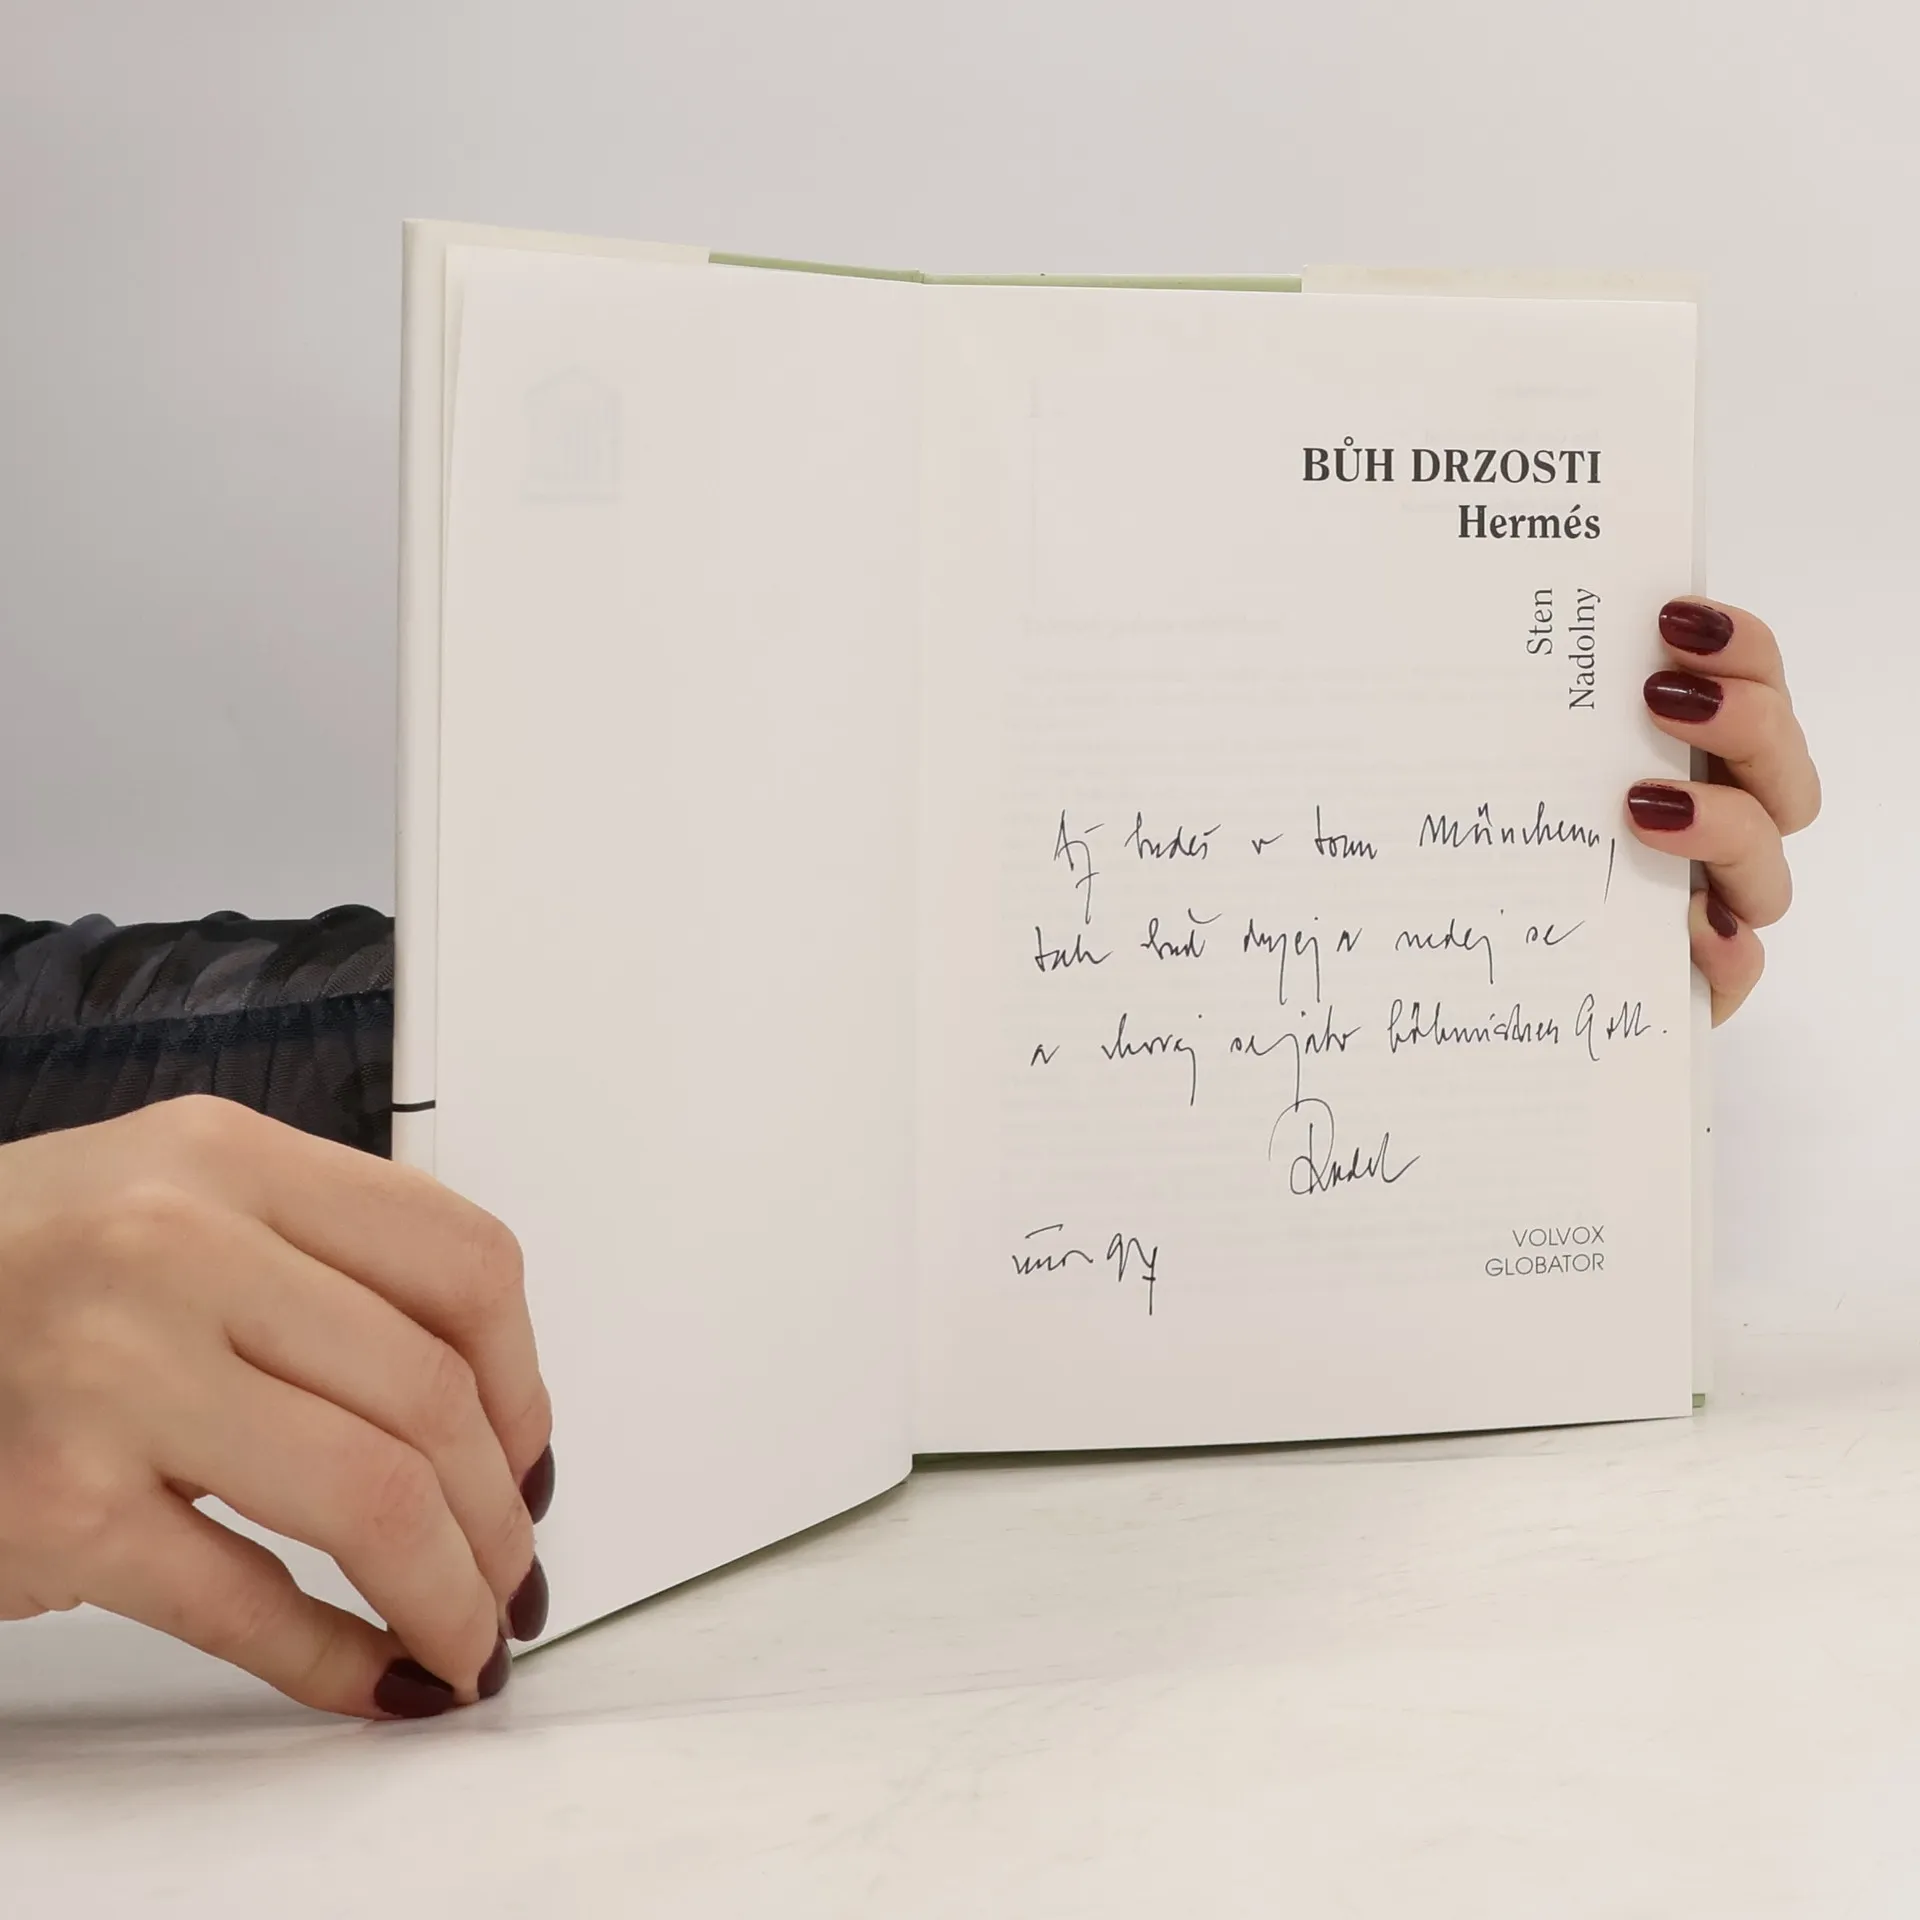 BŮH DRZOSTI
Hermés
Sten
Nadolny
Až budeš v tom Münchenu,
tak buď drzej a nedej se
a chovej se jako böhmischer Gott.
únor 97
VOLVOX
GLOBATOR